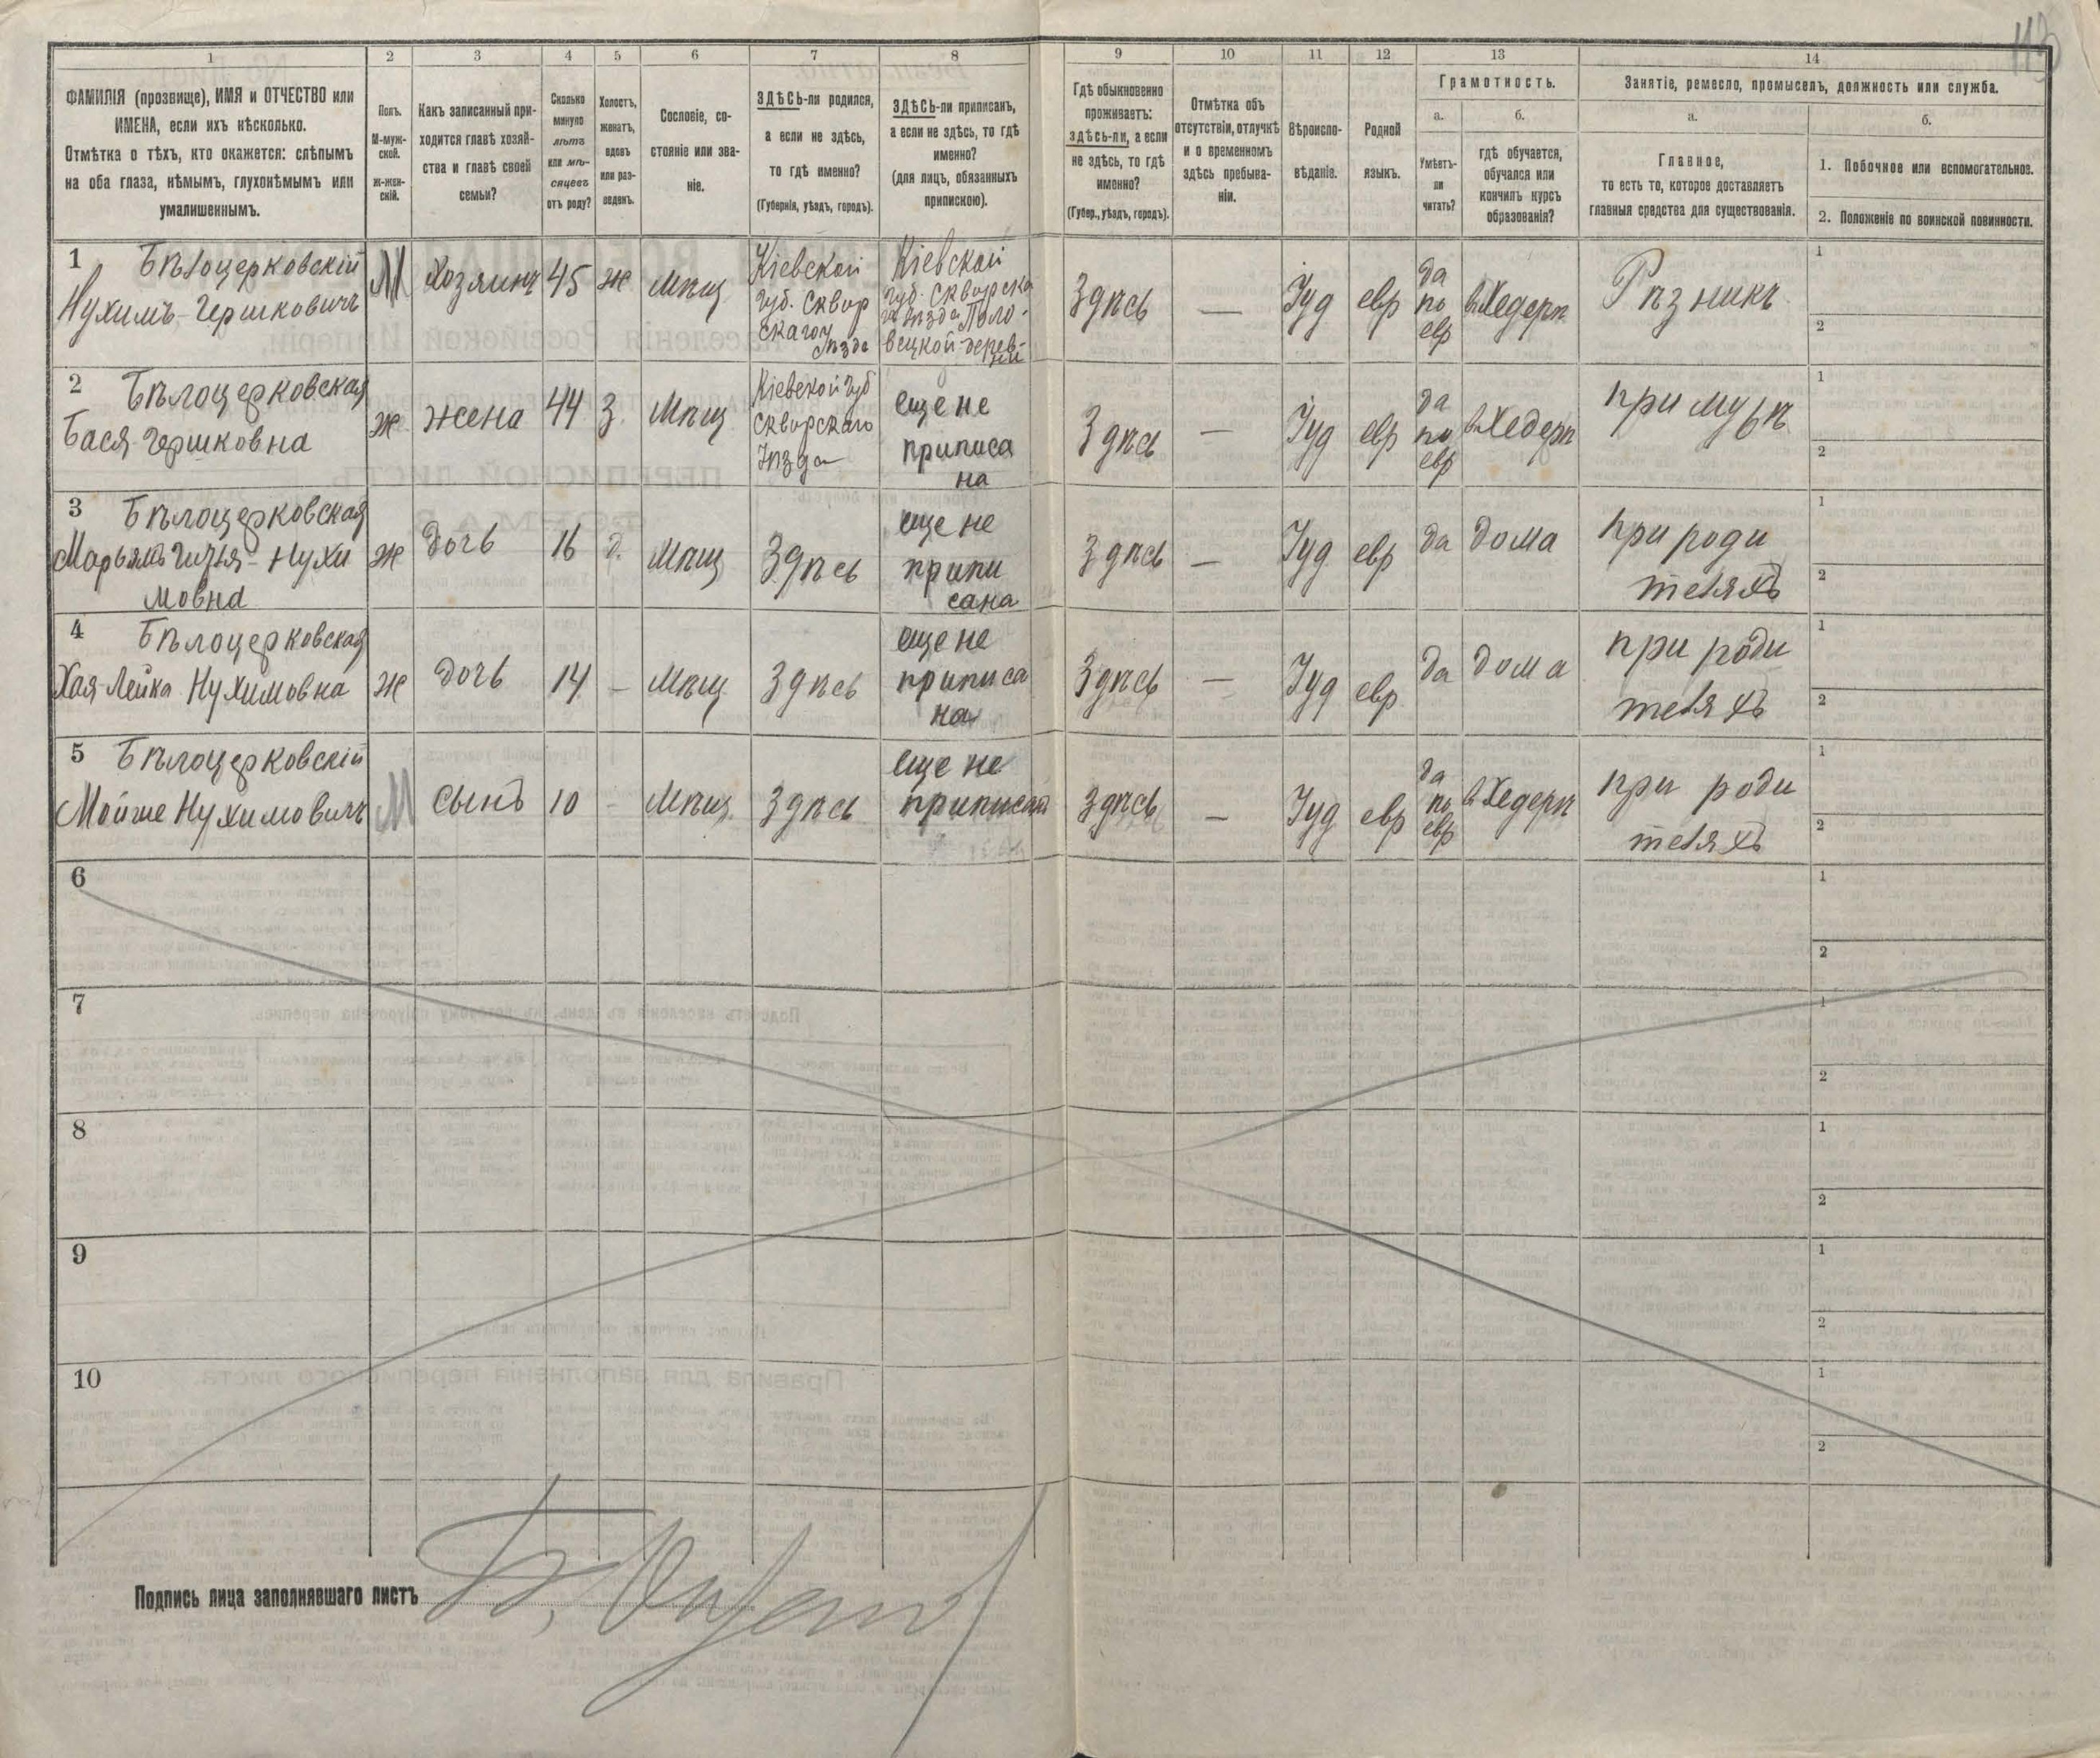 113
1 2 3 4 5 6 7 8 9 10 11 12 13 14
ФАМИЛІЯ (прозвище), ИМЯ и ОТЧЕСТВО или
ИМЕНА, если ихъ нѣсколько.
Отмѣтка о тѣхъ, кто окажется: слѣпымъ
на оба глаза, нѣмымъ, глухонѣмымъ или
умалишеннымъ.
Полъ.
М-муж-
ской.
Ж-жен-
скій.
Какъ записанный при-
ходится главѣ хозяй-
ства и главѣ своей
семьи?
Сколько
минуло
лѣтъ
или мѣ-
сяцевъ
отъ роду?
Холостъ,
женатъ,
вдовъ
или раз-
веденъ.
Сословіе, со-
стояніе или зва-
ніе.
ЗДѢСЬ-ли родился,
а если не здѣсь,
то гдѣ именно?
(Губернія, уѣздъ, городъ).
ЗДѢСЬ-ли приписанъ,
а если не здѣсь, то гдѣ
именно?
(для лицъ, обязанныхъ
припискою).
Гдѣ обыкновенно
проживаетъ:
здѣсь-ли, а если
не здѣсь, то гдѣ
именно?
(Губер., уѣздъ, городъ).
Отмѣтка объ
отсутствіи, отлучкѣ
и о временномъ
здѣсь пребыва-
ніи.
Вѣроиспо-
вѣданіе.
Родной
языкъ.
Грамотность.
а.
Умѣетъ-
ли
читать?
б.
гдѣ обучается,
обучался или
кончилъ курсъ
образованія?
Занятіе, ремесло, промыселъ, должность или служба.
а.
Главное,
то есть то, которое доставляетъ
главныя средства для существованія.
б.
1. Побочное или вспомогательное.
2. Положеніе по воинской повинности.
1 Бѣлоцерковскій
Нухимъ-Гершковичъ
М
Хозяинъ
45
ж
Мѣщ
Кіевской
губ. Сквир
скаго у
ѣзда
Кіевской
губ. Сквирска
го уѣзда Поло-
вецкой дерев-
ни
Здѣсь
—
Іуд
евр
да
по
евр
въ Хедерѣ
Рѣзникъ
1
2
2 Бѣлоцерковская
Бася Гершковна
ж
жена
44
З.
Мѣщ
Кіевской губ
Сквирскаго
Уѣзда
еще не
приписа
на
Здѣсь
—
Іуд
евр
да
по
евр
въ Хедерѣ
при мужѣ
1
2
3 Бѣлоцерковская
Марьямъ Гитля-Нухи
мовна
ж
дочь
16
д.
Мѣщ
Здѣсь
еще не
припи
сана
Здѣсь
—
Іуд
евр
да
дома
при роди
теляхъ
1
2
4 Бѣлоцерковская
Хая-Лейка Нухимовна
ж
дочь
14
—
Мѣщ
Здѣсь
еще не
приписа
на
Здѣсь
—
Іуд
евр
да
дома
при роди
теляхъ
1
2
5 Бѣлоцерковскій
Мойше Нухимовичъ
М
сынъ
10
-
Мѣщ.
Здѣсь
еще не
приписанъ
здѣсь
—
Іуд
евр
да
по
евр
въ Хедерѣ
при роди
теляхъ
1
2
6
1
2
7
1
2
8
1
2
9
1
2
10
1
2
Подпись лица заполнявшаго листъ